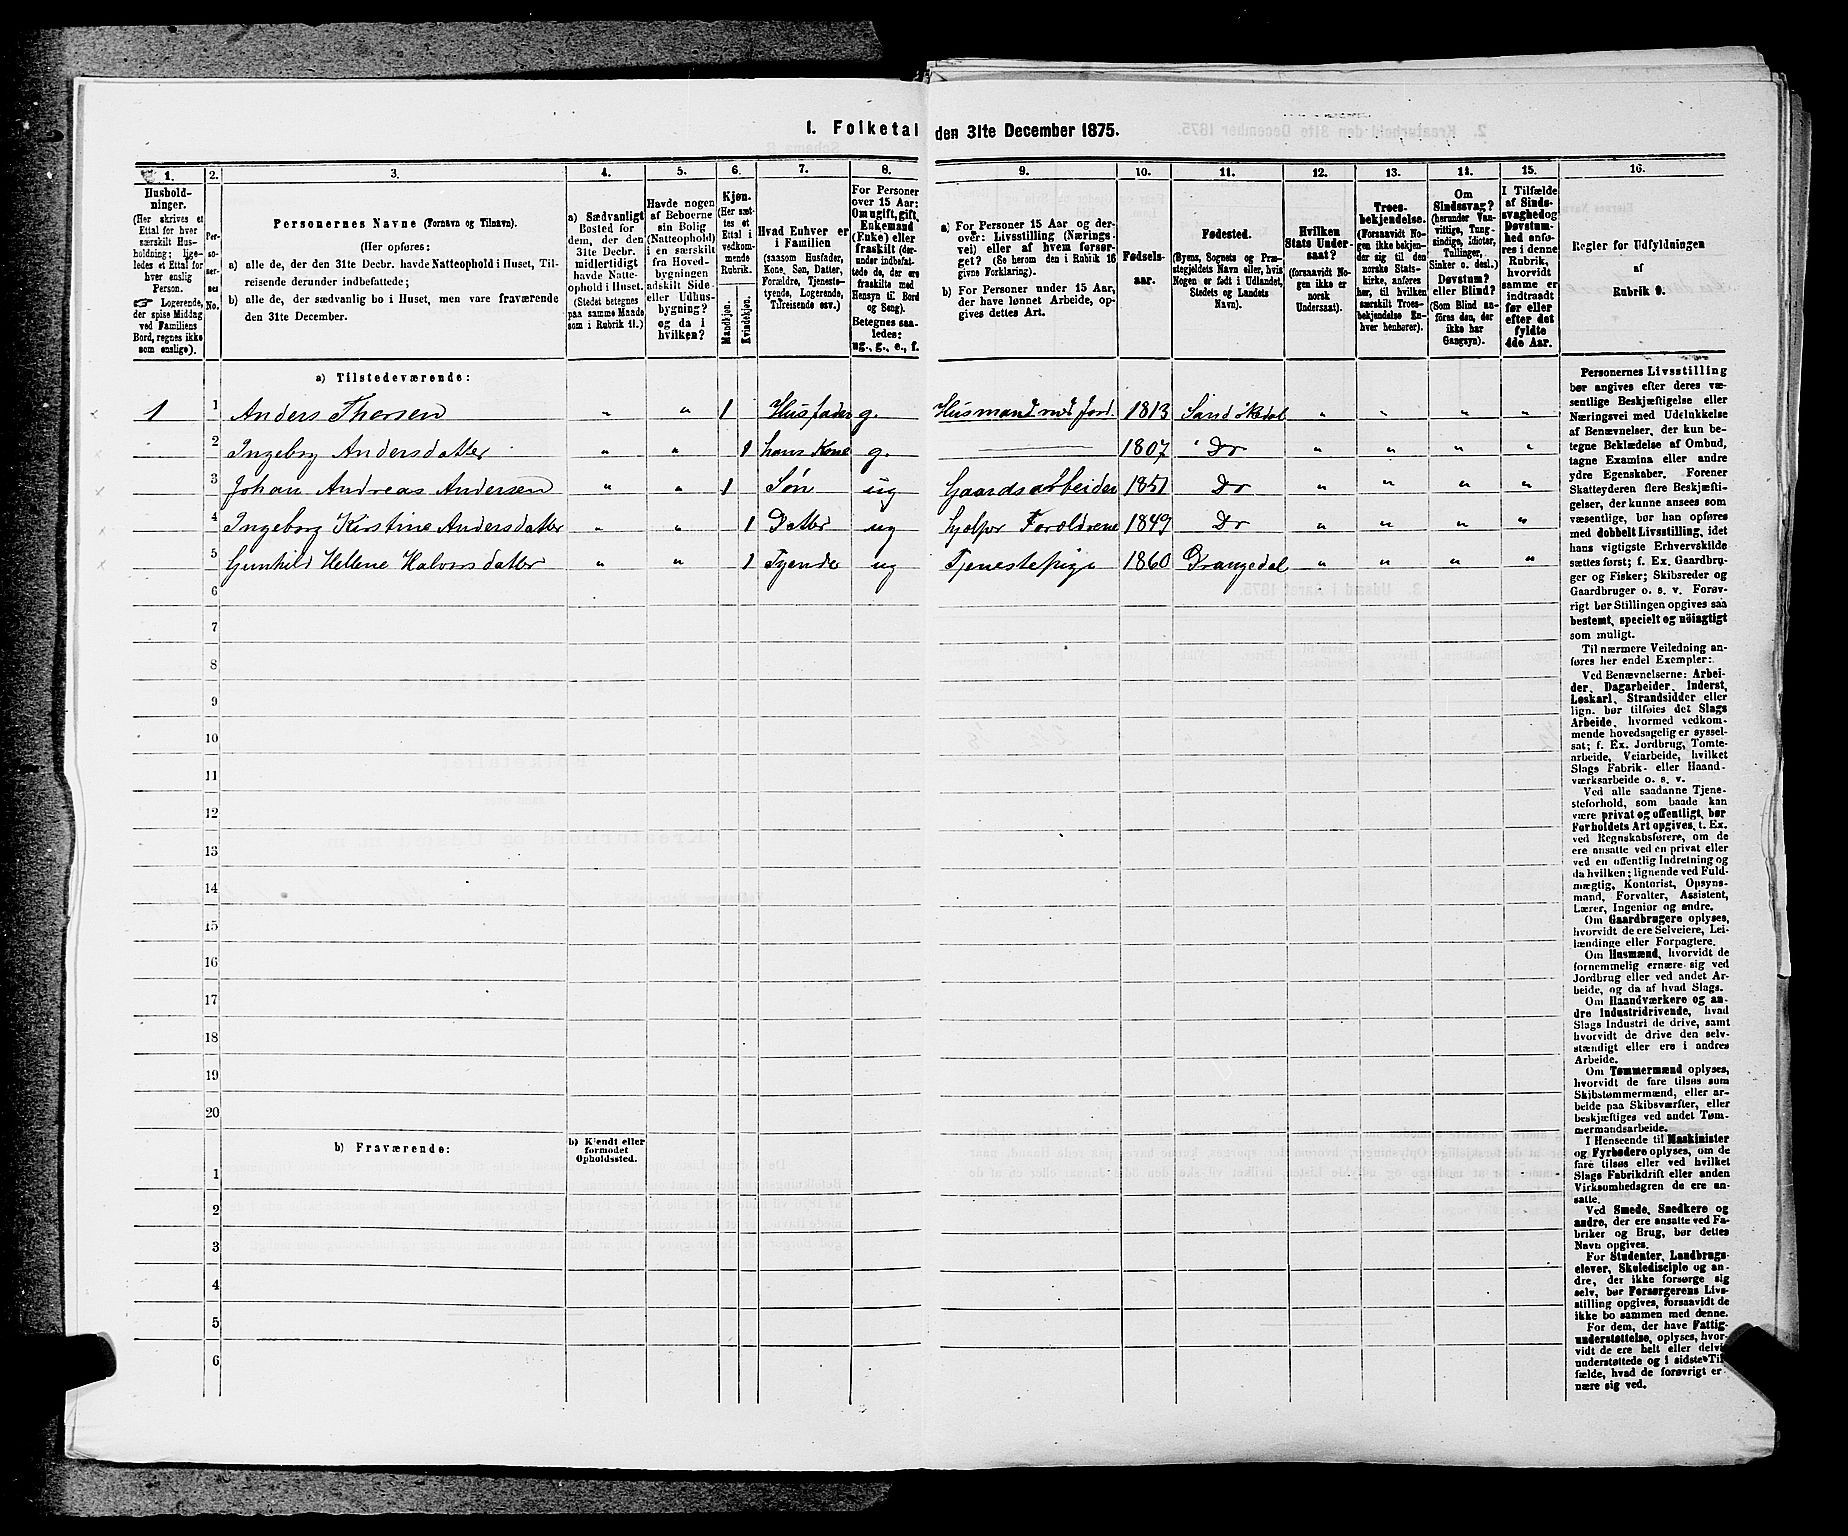 I. Folketal den 31te December 1875.
1. 2. 3. 4. 5. 6. 7. 8. 9. 10. 11. 12. 13. 14. 15. 16.
Husholdninger.
(Her skrives et
Ettal for hver
særskilt Husholdning;
ligeledes
et Ettal for
hver enslig
Person.
☞ Logerende,
der spise Middag
ved Familiens
Bord, regnes ikke
som enslige).
Personernes No.
Personernes Navne (Fornavn og Tilnavn).
(Her opføres:
a) alle de, der den 31te Decbr. havde Natteophold i Huset, Tilreisende
derunder indbefattede;
b) alle de, der sædvanlig bo i Huset, men vare fraværende
den 31te December.
a) Sædvanligt
Bosted for
dem, der den
31te Decbr.
midlertidigt
havde Natteophold
i Huset.
(Stedet betegnes
paa samme Maade
som i Rubrik 11.)
Havde nogen
af Beboerne
sin Bolig
(Natteophold)
i en særskilt
fra Hovedbygningen
adskilt Side-
eller Udhusbygning?
og da i
hvilken?
Kjøn.
(Her sættes
et
Ettal i
vedkommende
Rubrik.
Mandkjøn.
Kvindekjøn.
Hvad Enhver er
i Familien
(saasom Husfader,
Kone, Søn, Datter,
Forældre, Tjenestetyende,
Logerende,
Tilreisende osv.)
For Personer
over 15 Aar:
Om ugift, gift,
Enkemand
(Enke) eller
fraskilt
(herunder indbefattede
de, der ere
fraskilte med
Hensyn til Bord
og Seng).
Betegnes saaledes:
ug., g., e., f.
a) For Personer 15 Aar og derover:
Livsstilling (Næringsvei)
eller af hvem forsørget?
(Se herom den i Rubrik 16
givne Forklaring).
b) For Personer under 15 Aar,
der have lønnet Arbeide, opgives
dettes Art.
Fødselsaar.
Fødested.
(Byens, Sognets og Præstegjeldets
Navn eller, hvis
Nogen er født i Udlandet,
Stedets og Landets
Navn).
Hvilken
Stats Undersaat?
(forsaavidt Nogen
ikke er
norsk
Undersaat).
Troesbekjendelse.
(Forsaavidt Nogen
ikke bekjender
sig til den
norske Statskirke,
anføres
her, til hvilken
særskilt Troesbekjendelse
Enhver
henhører).
Om
Sindssvag?
(herunder Vanvittige,
Tungsindige,
Idioter,
Tullinger,
Sinker o. desl.)
Døvstum?
eller Blind?
(Som Blind anføres
den, der
ikke har
Gangsyn).
I Tilfælde
af Sindssvaghed
og
Døvstumhed
anføres
i denne
Rubrik,
hvorvidt
samme er
indtraadt
før eller
efter det
fyldte
4de Aar.
Regler for Udfyldningen
af
Rubrik 9.
a) Tilstedeværende:
1 1 Anders Thorsen „ „ 1 Husfader g. Husmand med Jord. 1813 Sandøkedal „ „ „ „
2 Ingeborg Andersdatter „ „ 1 hans Kone g. — 1807 Do „ „ „ „
3 Johan Andreas Andersen „ „ 1 Søn ug Gaardsarbeider 1851 Do „ „ „ „
4 Ingeborg Kirstine Andersdatter „ „ 1 Datter ug hjelper Forældrene 1849 Do „ „ „ „
5 Gunhild Hellene Halvorsdatter „ „ 1 Tyende ug Tjenestepige 1860 Drangedal „ „ „ „
6
7
8
9
10
11
12
13
14
15
16
17
18
19
20
b) Fraværende:
b) Kjendt eller
formodet
Opholdssted.
1
2
3
4
5
6
Personernes Livsstilling
bør angives efter deres væsentlige
Beskjæftigelse eller
Næringsvei med Udelukkelse
af Benævnelser, der kun betegne
Beklædelse af Ombud,
tagne Examina eller andre
ydre Egenskaber. Forener
Skatteyderen flere Beskjæftigelser,
der kunne ansees som
væsentlige, bør han opføres
med dobbelt Livsstilling, idet
hans vigtigste Erhvervskilde
sættes først; f. Ex. Gaardbruger
og Fisker; Skibsreder og
Gaardbruger o. s. v. Forøvrigt
bør Stillingen opgives saa
bestemt, specielt og nöiagtigt
som muligt.
Til nærmere Veiledning anføres
her endel Exempler:
Ved Benævnelserne: Arbeider,
Dagarbeider, Inderst,
Løskarl, Strandsidder eller
lign. bør tilføies det Slags
Arbeide, hvormed vedkommende
hovedsagelig er sysselsat;
f. Ex. Jordbrug, Tomtearbeide,
Veiarbeide, hvilket
Slags Fabrik- eller Haandværksarbeide
o. s. v.
Ved alle saadanne Tjenesteforhold,
som baade kan
være privat og offentligt, bør
Forholdets Art opgives, t. Ex.
ved Regnskabsførere, om de
ere ansatte ved en privat eller
ved en offentlig Indretning og
da hvilken; lignende ved Fuldmægtig,
Kontorist, Opsynsmand,
Forvalter, Assistent,
Lærer, Ingeniør og andre.
Om Gaardbrugere oplyses,
hvorvidt de ere Selveiere, Leilændinge
eller Forpagtere.
Om Husmænd, hvorvidt de
fornemmelig ernære sig ved
Jordbrug eller ved andet Arbeide,
og da af hvad Slags.
Om Haandværkere og andre
Industridrivende, hvad
Slags Industri de drive, samt
hvorvidt de drive den selvstændigt
eller ere i andres
Arbeide.
Om Tømmermænd oplyses,
hvorvidt de fare tilsøs som
Skibstømmermænd, eller arbeide
paa Skibsværfter, eller
beskjæftiges ved andet Tømmermandsarbeide.
I Henseende til Maskinister
og Fyrbødere oplyses, om de
fare tilsøs eller ved hvilket
Slags Fabrikdrift eller anden
Virksomhedsgren de ere ansatte.
Ved Smede, Snedkere og
andre, der ere ansatte ved Fabriker
og Brug, bør dettes
Navn opgives.
For Studenter, Landbrugselever,
Skoledisciple og andre,
der ikke forsørge sig
selv, bør Forsørgerens Livsstilling
opgives, forsaavidt de
ikke bo sammen med denne.
For dem, der have Fattigunderstøttelse,
oplyses, hvorvidt
de ere helt eller delvis
understøttede og i sidste Tilfælde,
hvad de forøvrigt ernære
sig ved.